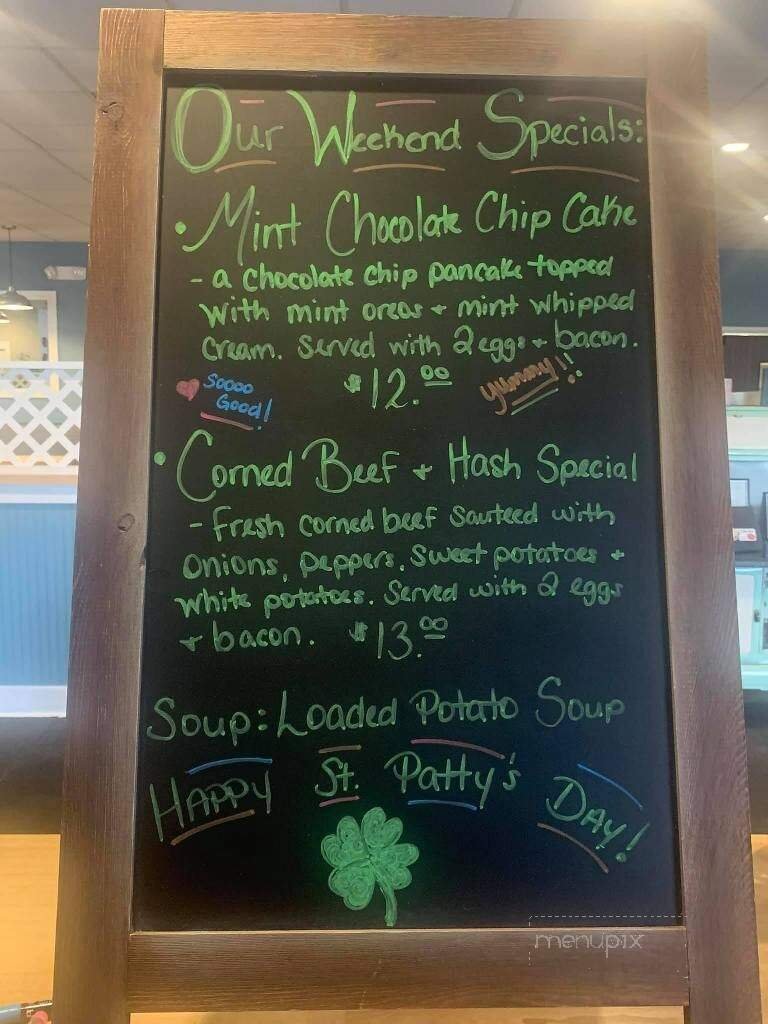 Our Weekend Specials:
• Mint Chocolate Chip Cake
- a chocolate chip pancake topped
with mint oreos + mint whipped
cream. Served with 2 eggs + bacon.
Soooo
Good!
$12.00
yummy!!
• Corned Beef + Hash Special
- Fresh corned beef sauteed with
onions, peppers, sweet potatoes +
white potatoes. Served with 2 eggs
+ bacon. $13.00
Soup: Loaded Potato Soup
Happy St. Patty's Day!
menupix